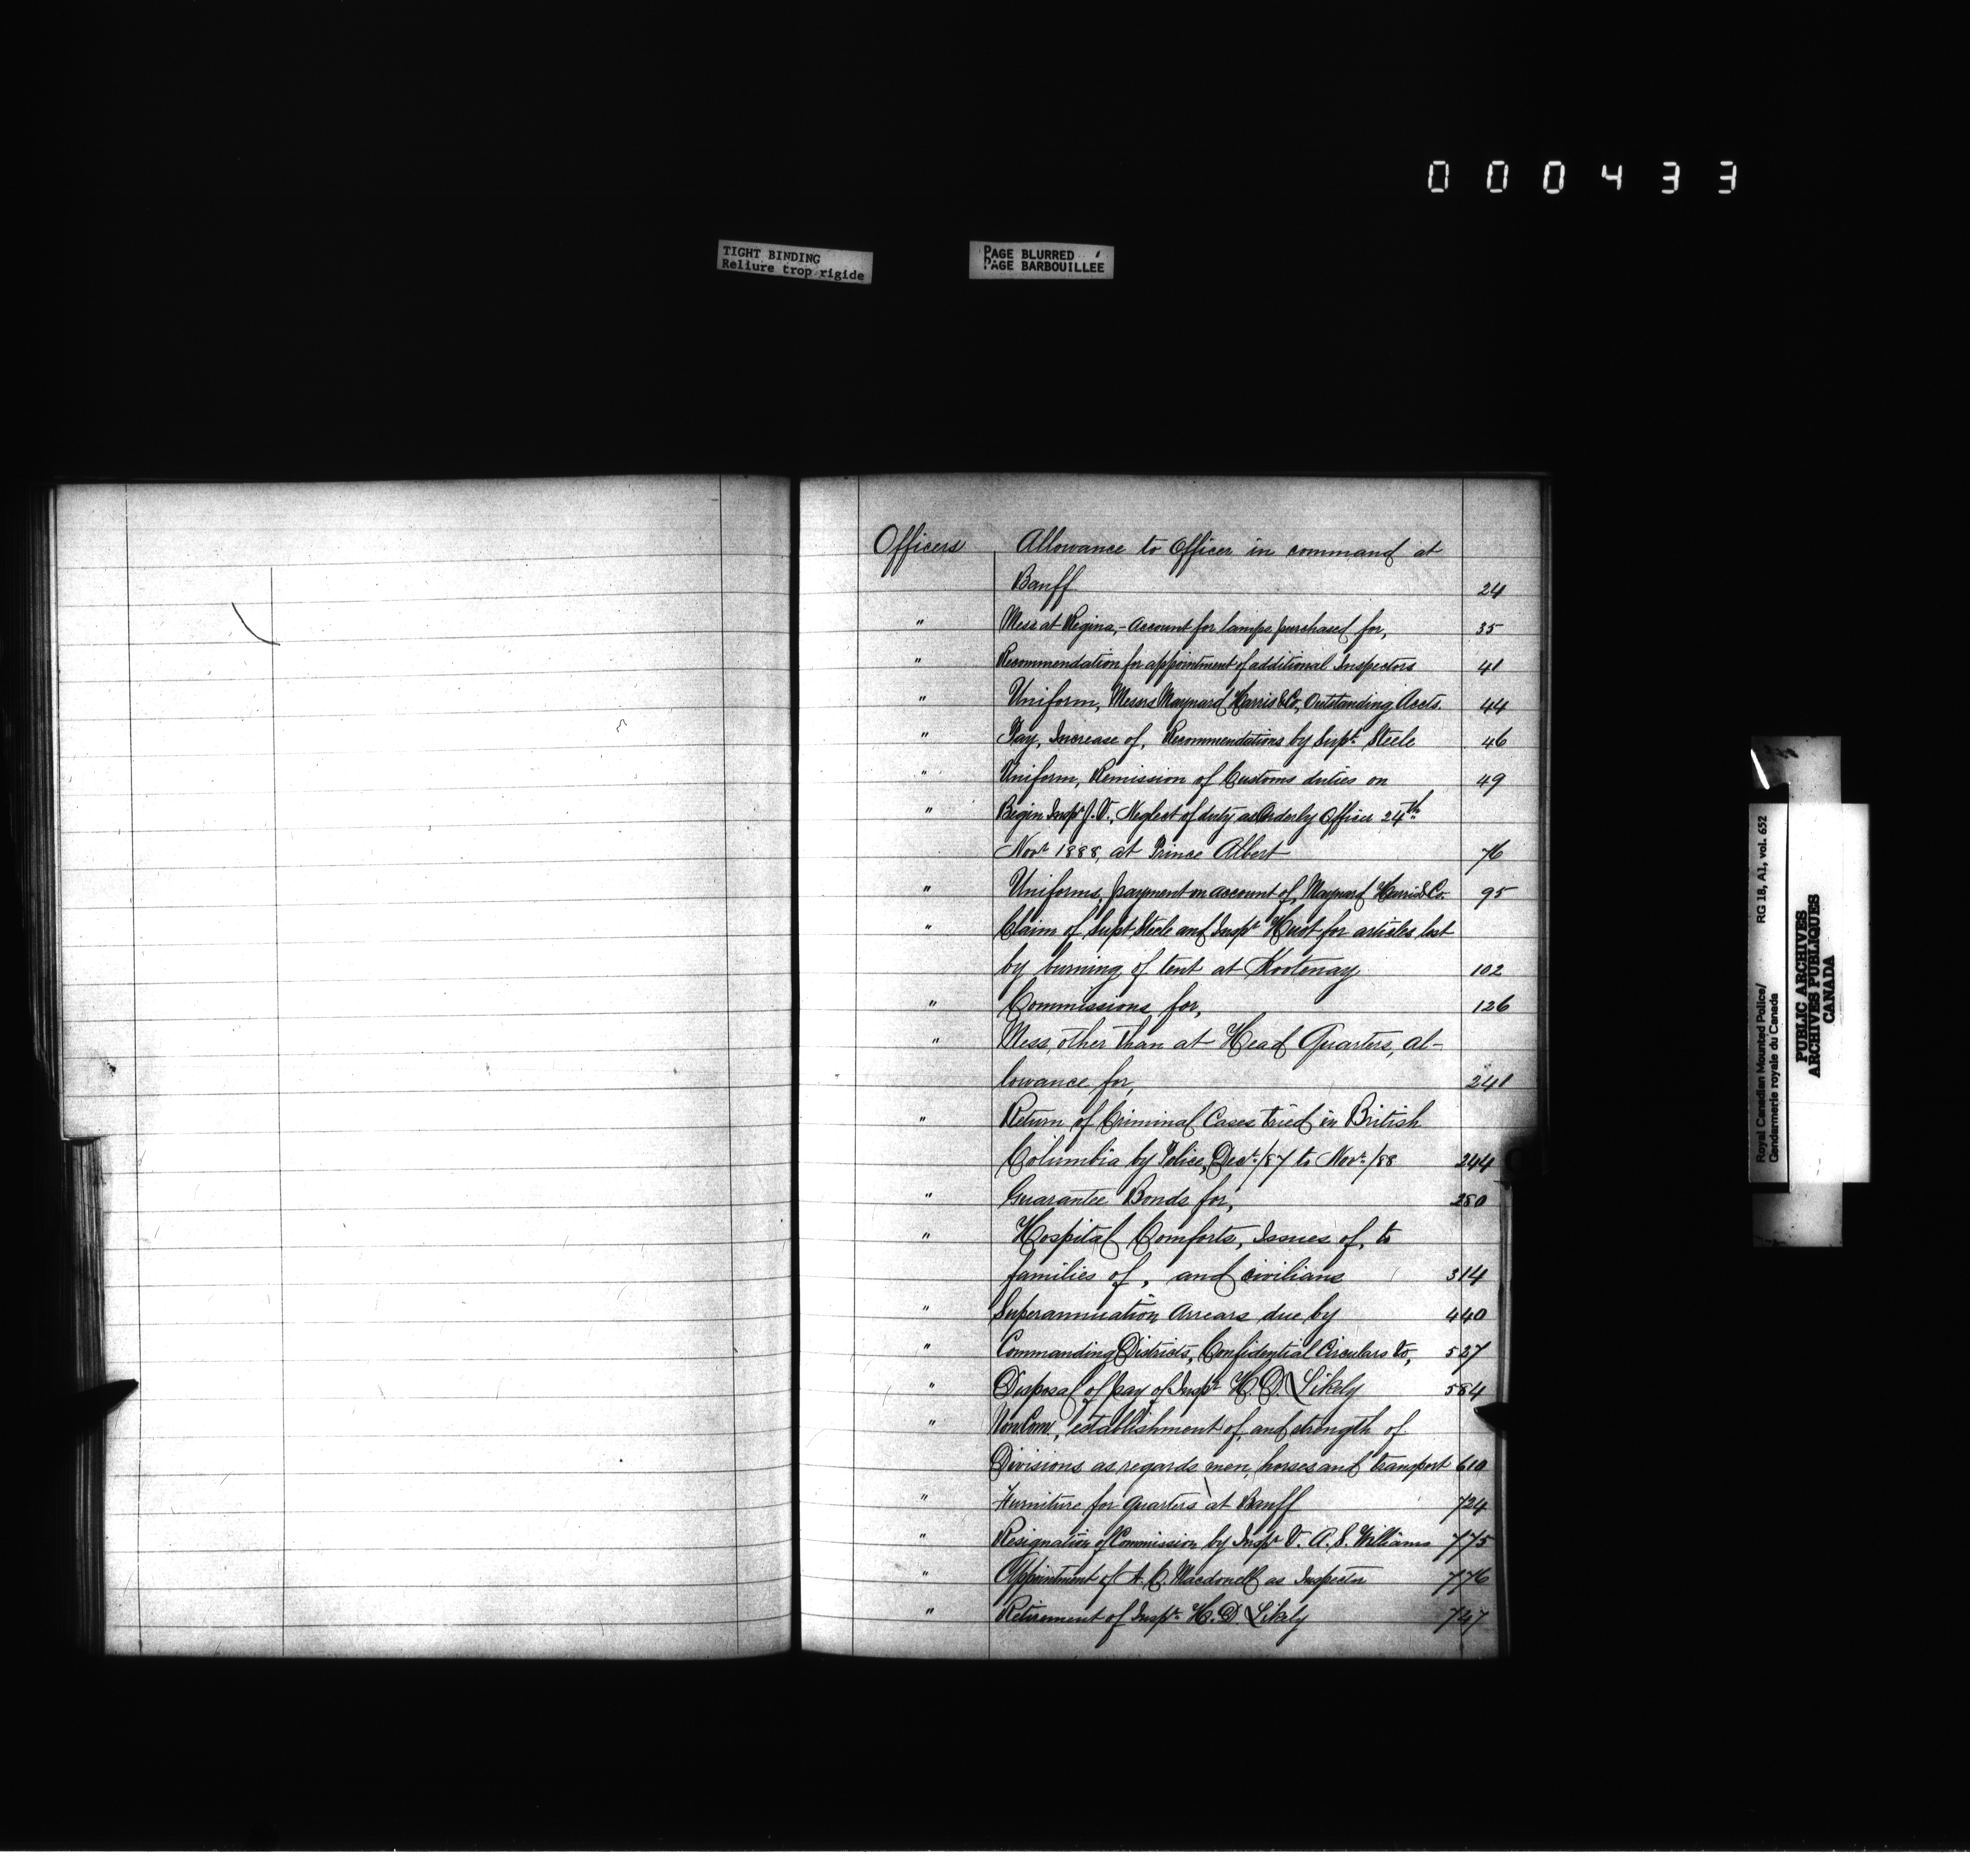 000433
TIGHT BINDING
Reliure trop rigide
PAGE BLURRED
PAGE BARBOUILLÉE
Officers Allowance to Officer in command at
Banff 24
" Mess at Regina,- Account for lamps purchased for, 35
" Recommendation for appointment of additional Inspectors 41
" Uniform, Messrs Maynard Harris & Co, Outstanding Accts. 44
" Pay, Increase of, Recommendations by Supt. Steele 46
" Uniform, Remission of Customs duties on 49
" Begin Inspr J.V., Neglect of duty as Orderly Officer 24th
Novr 1888, at Prince Albert 76
" Uniforms, payment on account of, Maynard Harris & Co. 95
" Claim of Supt Steele and Inspr Huot for articles lost
by burning of tent at Kootenay 102
" Commissions for, 126
" Mess, other than at Head Quarters, al-
lowance for, 241
" Return of Criminal Cases tried in British
Columbia by Police, Decr./87 to Novr./88 244
" Guarantee Bonds for, 280
" Hospital Comforts, Issues of, to
families of, and civilians 314
" Superannuation Arrears due by 440
" Commanding Districts, Confidential Circulars to, 527
" Disposal of pay of Inspr H.D. Likely 584
" Non. Com., establishment of, and strength of
Divisions as regards men, horses and transport 610
" Furniture for quarters at Banff 724
" Resignation of Commission by Inspr V. A. S. Williams 775
" Appointment of A. C. Macdonell as Inspector 776
" Retirement of Inspr. H. D. Likely 747
Royal Canadian Mounted Police/ RG 18, A1, vol. 652
Gendarmerie royale du Canada
PUBLIC ARCHIVES
ARCHIVES PUBLIQUES
CANADA